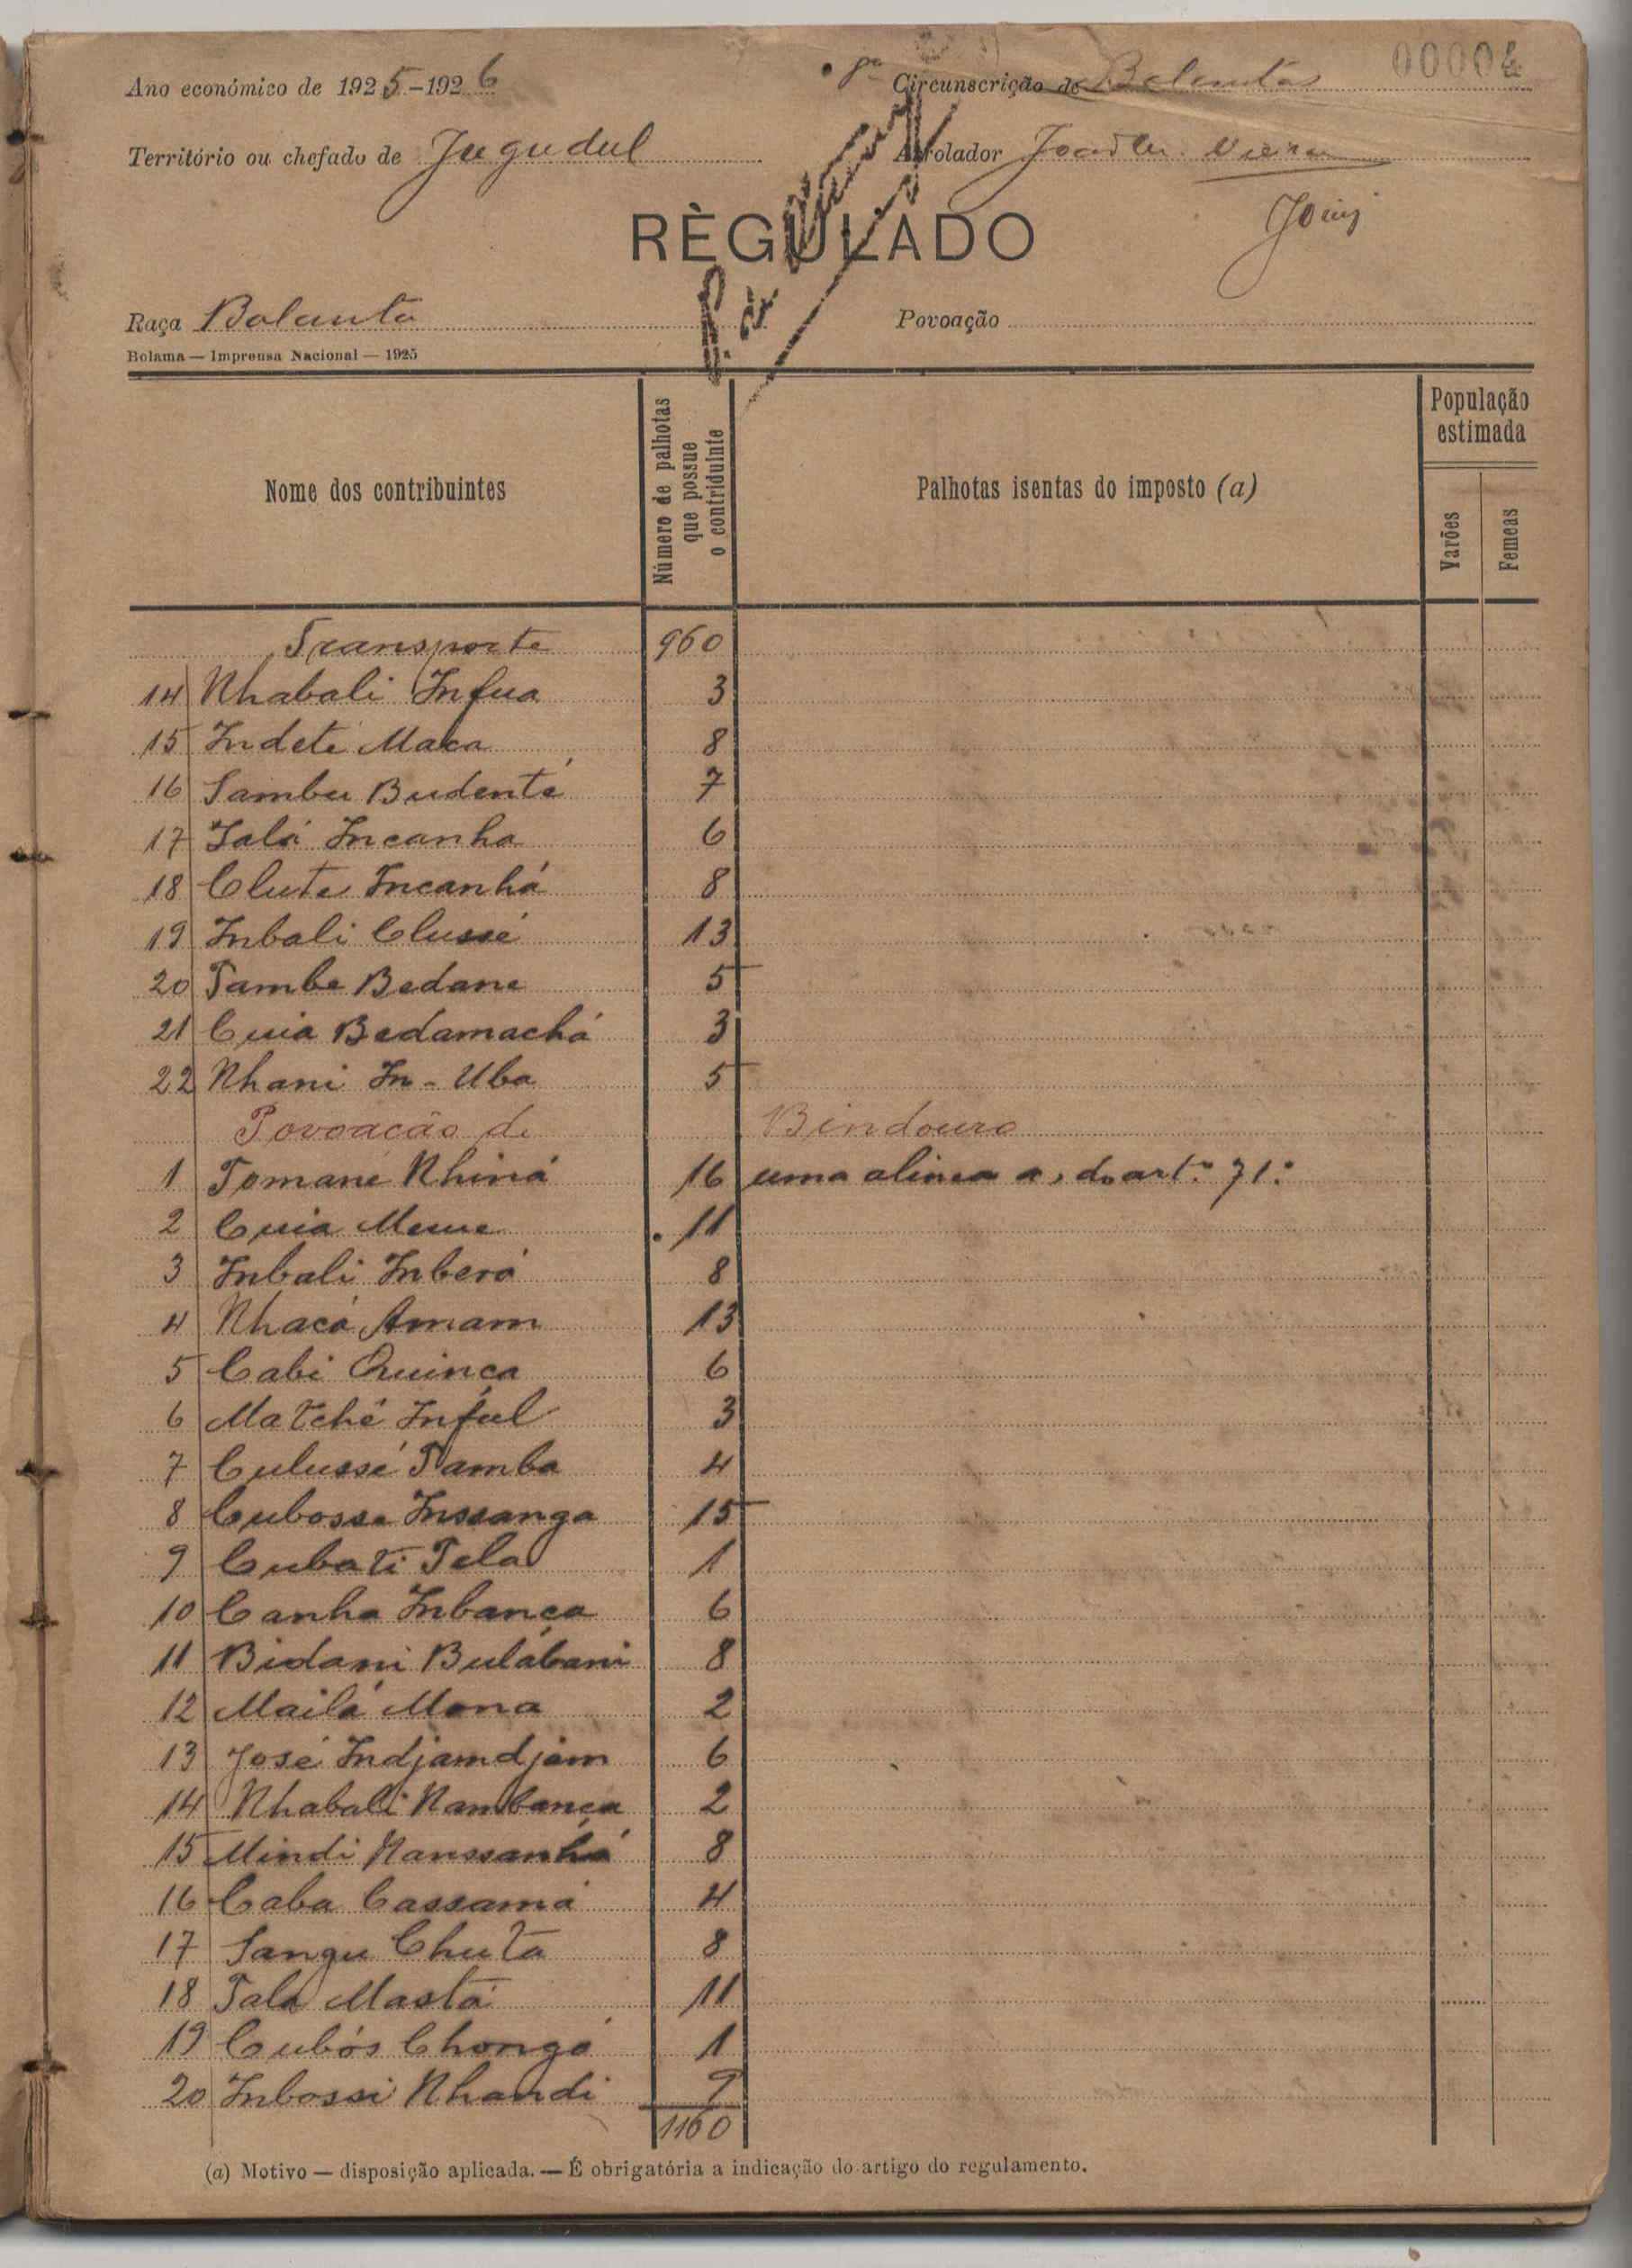 00004
Ano económico de 1925-1926
Circunscrição de Balantas
Território ou chefado de Jugudul
Arrolador Vieira
RÈGULADO
Raça Balanta
Povoação
Bolama — Imprensa Nacional — 1925
Nome dos contribuintes
Número de palhotas que possue o contriduinte
Palhotas isentas do imposto (a)
População estimada
Varões
Femeas
Transporte 960
14 Nhabali Infua 3
15 Indeté Maca 8
16 Sambu Budenté 7
17 Talá Incanha 6
18 Clute Incanhá 8
19 Inbali Clussé 13
20 Tambe Bedane 5
21 Cuia Bedamachá 3
22 Nhani In-Uba 5
Povoacão de Bindouro
1 Tomané Nhiná 16 uma alinea a, do artº 71º
2 Cuia 11
3 Inbali Inberá 8
4 Nhacá Amam 13
5 Cabi Quinca 6
6 Matché Inful 3
7 Culussé Tamba 4
8 Cubosse Inssanga 15
9 Cubati Tela 1
10 Canha Inbança 6
11 Bidami Bulábani 8
12 Mailá Mona 2
13 José Indjamdjam 6
14 Nhabali Nambança 2
15 Mindi Nanssanhá 8
16 Caba Cassamá 4
17 Sangu Chuta 8
18 Tala Mastá 11
19 Cubós Chongó 1
20 Inbossi Nhandi 9
1160
(a) Motivo — disposição aplicada. — É obrigatória a indicação do artigo do regulamento.